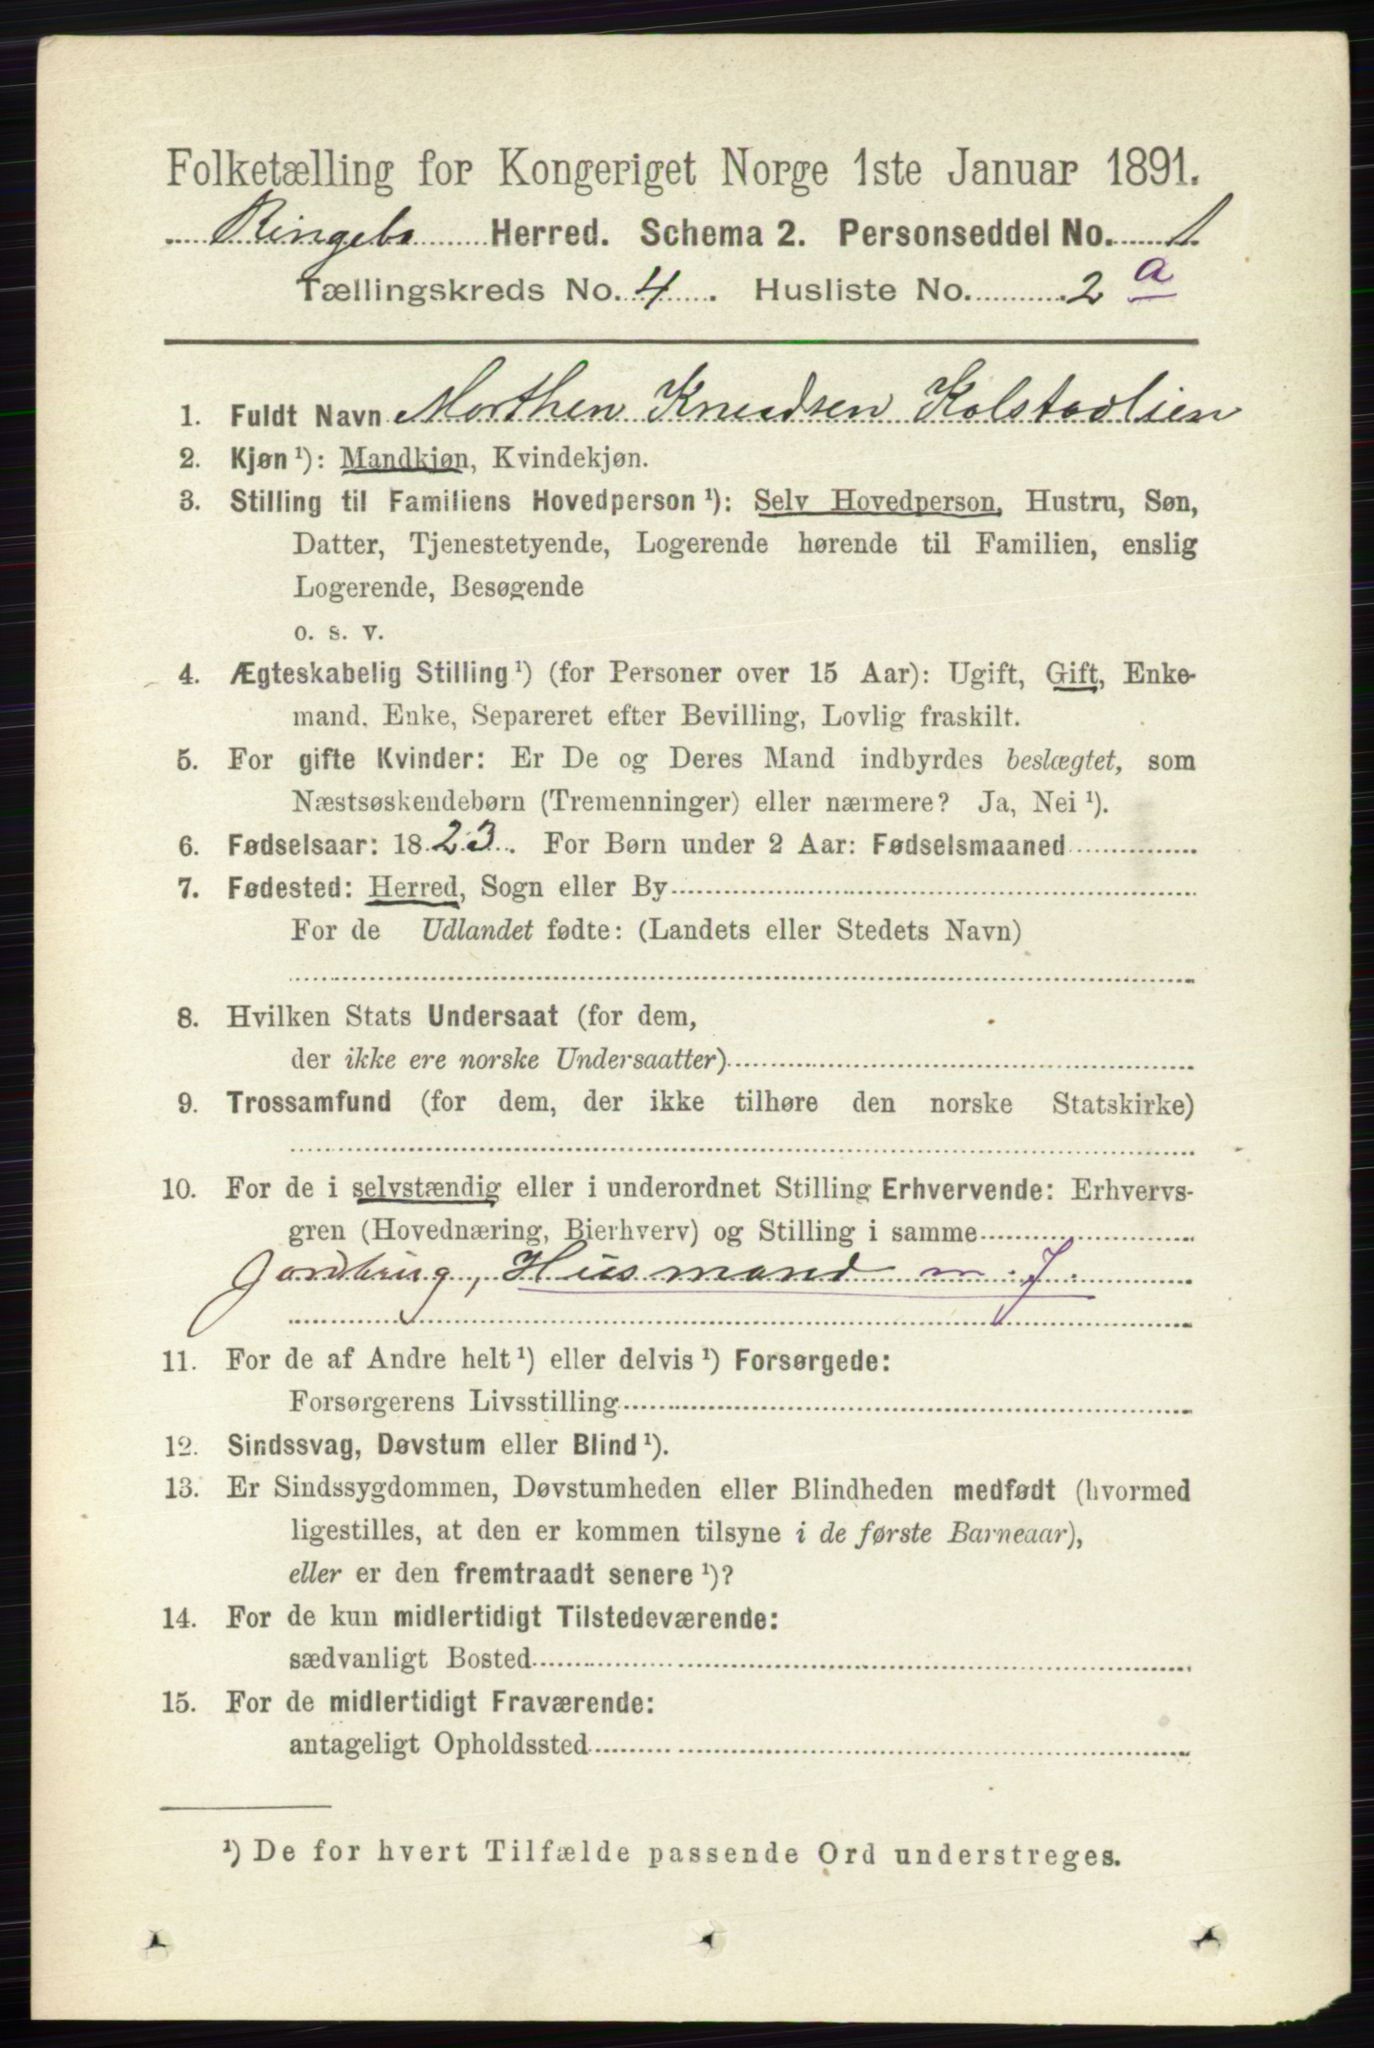 Folketælling for Kongeriget Norge 1ste Januar 1891.
Ringebo Herred. Schema 2. Personseddel No. 1.
Tællingskreds No. 4. Husliste No. 2 a
1. Fuldt Navn Morthen Knudsen Kolstadlien
2. Kjøn ¹): Mandkjøn, Kvindekjøn.
3. Stilling til Familiens Hovedperson ¹): Selv Hovedperson, Hustru, Søn,
Datter, Tjenestetyende, Logerende hørende til Familien, enslig
Logerende, Besøgende
o. s. v.
4. Ægteskabelig Stilling ¹) (for Personer over 15 Aar): Ugift, Gift, Enke-
mand, Enke, Separeret efter Bevilling, Lovlig fraskilt.
5. For gifte Kvinder: Er De og Deres Mand indbyrdes beslægtet, som
Næstsøskendebørn (Tremenninger) eller nærmere? Ja, Nei ¹).
6. Fødselsaar: 1823. For Børn under 2 Aar: Fødselsmaaned
7. Fødested: Herred, Sogn eller By
For de Udlandet fødte: (Landets eller Stedets Navn)
8. Hvilken Stats Undersaat (for dem,
der ikke ere norske Undersaatter)
9. Trossamfund (for dem, der ikke tilhøre den norske Statskirke)
10. For de i selvstændig eller i underordnet Stilling Erhvervende: Erhvervs-
gren (Hovednæring, Bierhverv) og Stilling i samme
Jordbrug, Husmand m. J.
11. For de af Andre helt ¹) eller delvis ¹) Forsørgede:
Forsørgerens Livsstilling
12. Sindssvag, Døvstum eller Blind ¹).
13. Er Sindssygdommen, Døvstumheden eller Blindheden medfødt (hvormed
ligestilles, at den er kommen tilsyne i de første Barneaar),
eller er den fremtraadt senere ¹)?
14. For de kun midlertidigt Tilstedeværende:
sædvanligt Bosted
15. For de midlertidigt Fraværende:
antageligt Opholdssted
¹) De for hvert Tilfælde passende Ord understreges.